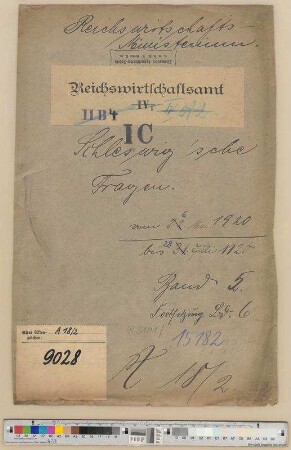 Reichswirtschafts-
Ministerium.
Reichswirtschaftsamt
IV.
II B 4
IC
Schleswig'sche
Fragen.
vom Mai 1920
bis 28 Juli 1920
Band 5.
Fortsetzung Bd. 6
15182
A 18/2
Akten
zeichen:
A 18/2
9028